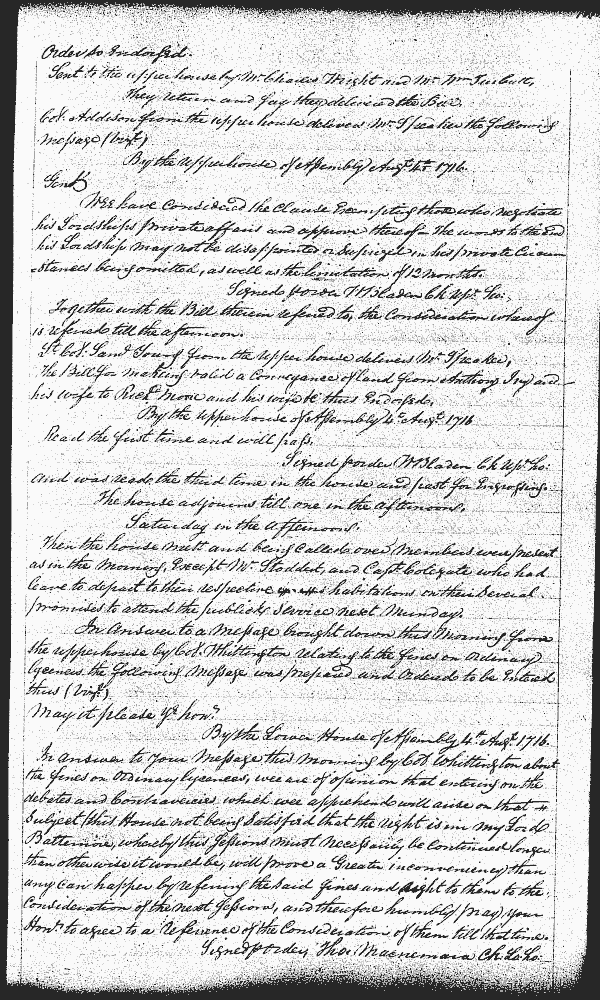 Order so Endorsed.
Sent to the upper house by Mr Charles Wright and Mr Wm Turbutt,
they return and say they delivered the Bar.
Col. Addison from the upper house delivers Mr Speaker the following
message (vizt)
By the upperhouse of Assembly Augt 4th 1716.
Gentl
Wee have considered the Clause Exempting those who negotiate
his Lordships private affairs and approve thereof. The words to the End
his Lordship may not be disappointed or Surprized in his private Circum
stances being omitted, as well as the limitation of 12 months.
Signed p order WBladen Ck Upr. ho:
Together with the Bill therein referred to, the Consideration whereof
is refered till the afternoon.
Lt Col: Saml Young from the upper house delivers Mr Speaker,
The Bill for making valid a Conveyance of land from Anthony Ivy and
his wife to Richd Moore and his wife thus Endorsed.
By the upperhouse of Assembly 4th Augt 1716
Read the first time and will pass.
Signed p order WBladen Ck Upr ho:
And was reade the third time in the house and past for Engrossing.
The house adjourns till one in the afternoon.
Saturday in the afternoon.
Then the house mett and being Called over, Members were present
as in the Morning, Except Mr Stoddert, and Capt Colegate who had
leave to depart to their respective habitations on their Several
promises to attend the publick Service next Munday.
In Answer to a Message brought down this Morning from
the upperhouse by Col. Whittington relating to the fines on ordinary
lycences the following Message was prepared and Ordered to be Entered
thus (vizt)
May it please yr honrs
By the Lower House of Assembly 4th Augt 1716.
In answer to your Message this morning by Col Whittington about
the fines on Ordinary lycences, wee are of opinion that entering on the
debates and Contravercies which wee apprehend will arise on that
Subject (this House not being Satisfied that the right is in my Lord
Baltemore, whereby this Sessions must necessarily be continued longer
than otherwise it would be, will prove a Greater inconveniency than
any can happen by refering the said fines and right to them to the
Consideration of the next Sessions, and therefore humbly pray your
Honrs to agree to a reference of the Consideration of them till that time.
Signed p order, Thos: Macnemara Ck Lo ho: